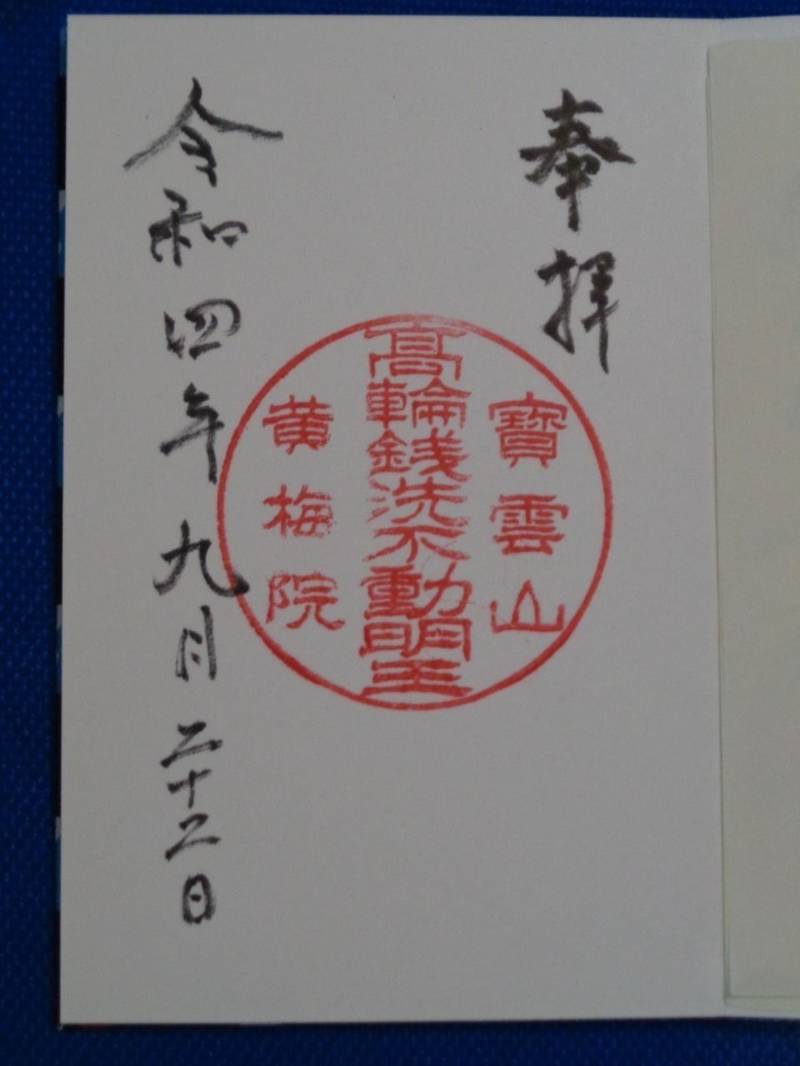 奉拝
寶雲山
髙輪銭洗不動明王
黄梅院
令和四年九月二十二日